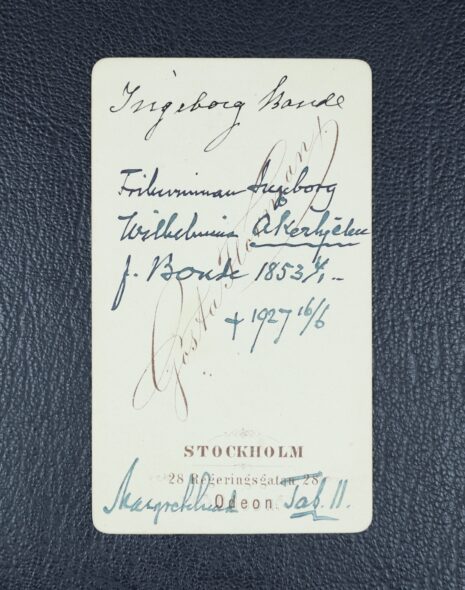 Ingeborg Bonde
Friherrinnan Ingeborg
Wilhelmina Åkerhjelm
f. Bonde 1853 4/1 –
+ 1927 16/6
Gösta Florman
STOCKHOLM
28 Regeringsgatan 28
Odeon
Tab. 11.